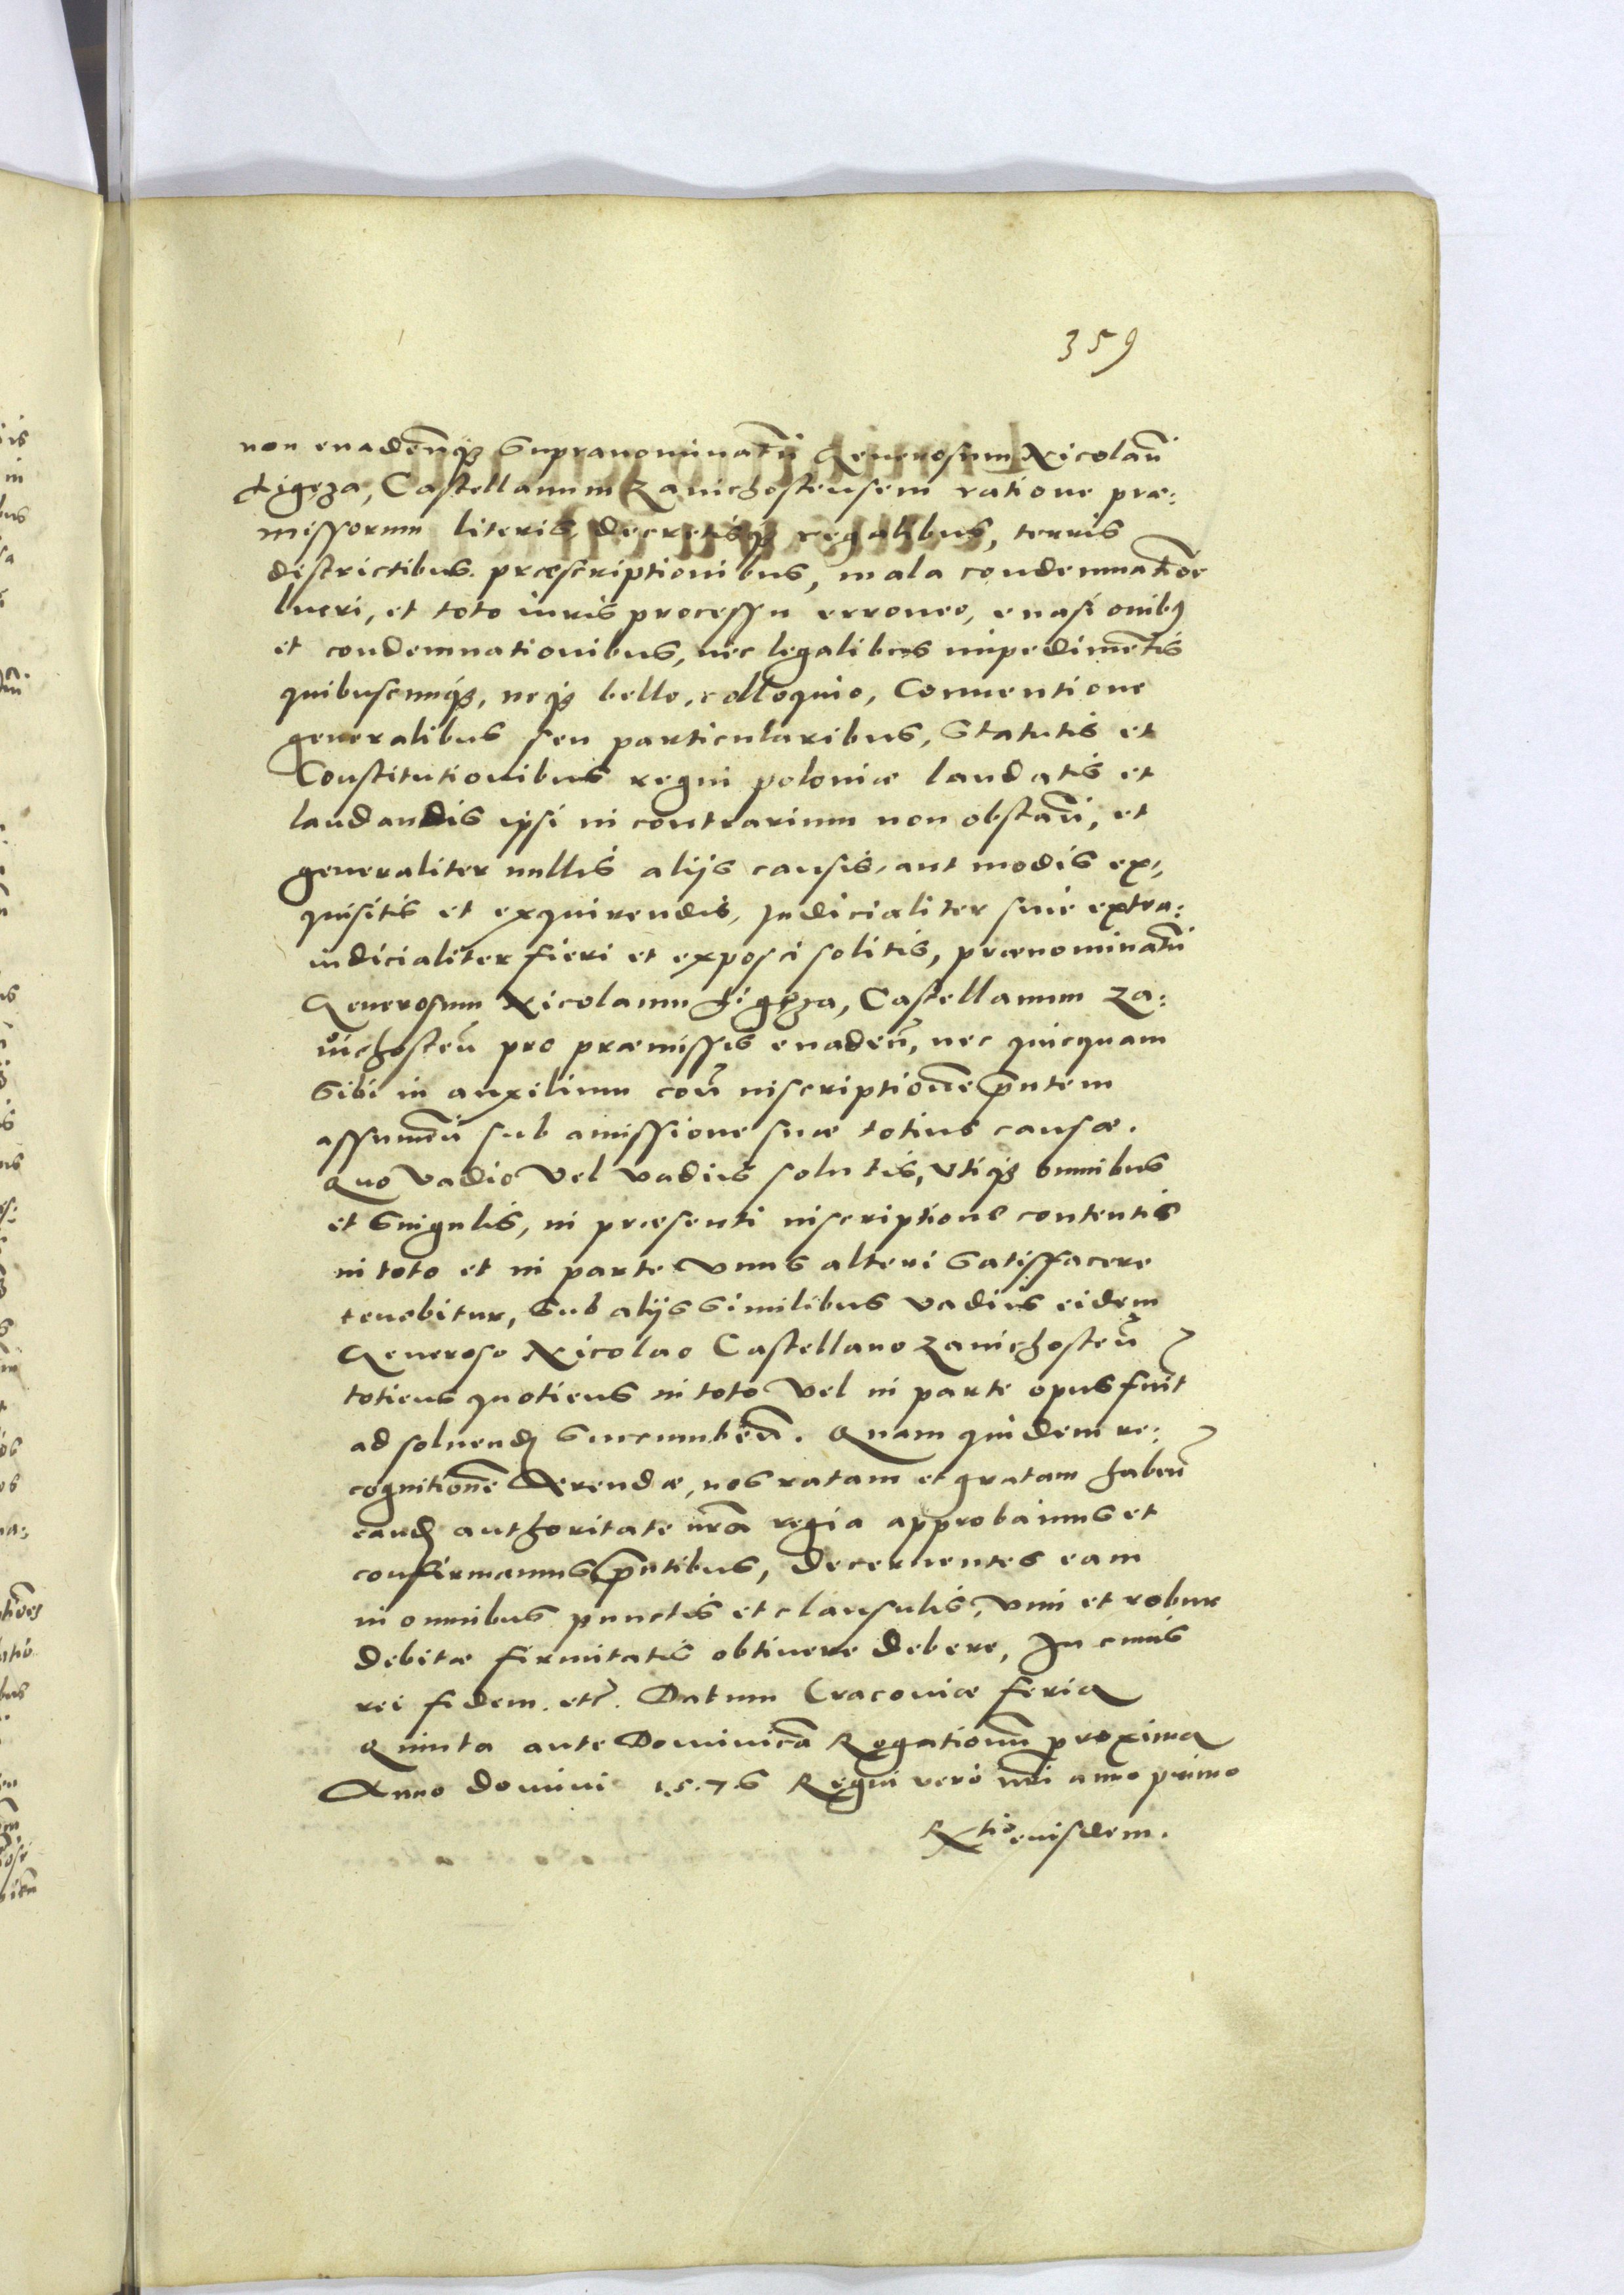 359
non euadenq₃ Supranominatū Generosum Nicolaū
Ligęza, Castellanum Zavichostensem ratione præ:
missorum literis, decretisq₃ regalibus, terris
districtibus. præscriptionibus, mala condemnatiōe
lucri, et toto iuris processu erroneo, euasionib9
et condemnationibus, nec legalibus impedimētis
quibuscunq₃, neq₃ bello, colloquio, Conuentione
generalibus seu particularibus, Statutis et
Constitutionibus regni poloniæ laudatis et
laudandis ipsi in contrarium non obstaū, et
generaliter nullis alijs causis, aut modis ex,
quisitis et exquirendis, Judicialiter siue extra:
iudicialiter fieri et exposci solitis, prænominatū
Generosum Nicolaum Ligęza, Castellanum Za:
uichosteū pro præmissis euadeū, nec quicquam
Sibi in auxilium coū inscriptionē pntem
assumeū sub amissione suæ totius causæ.
Quo vadio vel vadiis solutis, vtiq₃ omnibus
et Singulis, in præsenti inscriptione contentis
in toto et in parte vnus alteri Satisfacere
tenebitur, Sub alijs Similibus vadiis eidem
Generoso Nicolao Castellano Zauichosteū
totiens quotiens in toto vel in parte opus fuit
ad soluend Succumbeū. Quam quidem re:
cognitionē Arendæ, nos ratam et gratam habeū
eand authoritate nrā regia approbamus et
confirmamus pntibus, decernentes eam
in omnibus punctis et clausulis, vim et robur
debitæ firmitatis obtinere debere, In cuius
rei fidem. etc. Datum Cracouiæ feria
Quinta ante Dominicā Rogationū proxima
Anno domini 1.5.7.6 Regni vero nri anno primo
Rtio eiusdem.